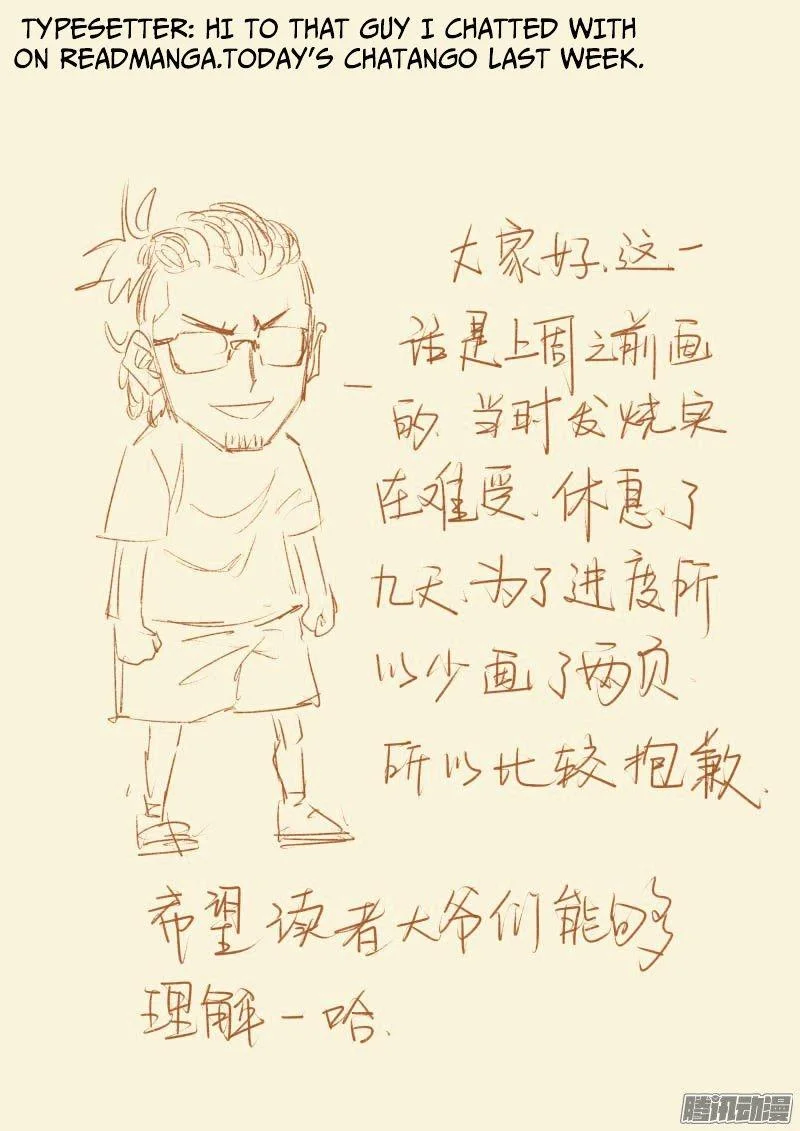 TYPESETTER: HI TO THAT GUY I CHATTED WITH
ON READMANGA.TODAY'S CHATANGO LAST WEEK.
大家好、这一
话是上周之前画
的、当时发烧实
在难受、休息了
九天、为了进度所
以少画了两页
所以比较抱歉、
希望读者大爷们能够
理解一哈、
腾讯动漫